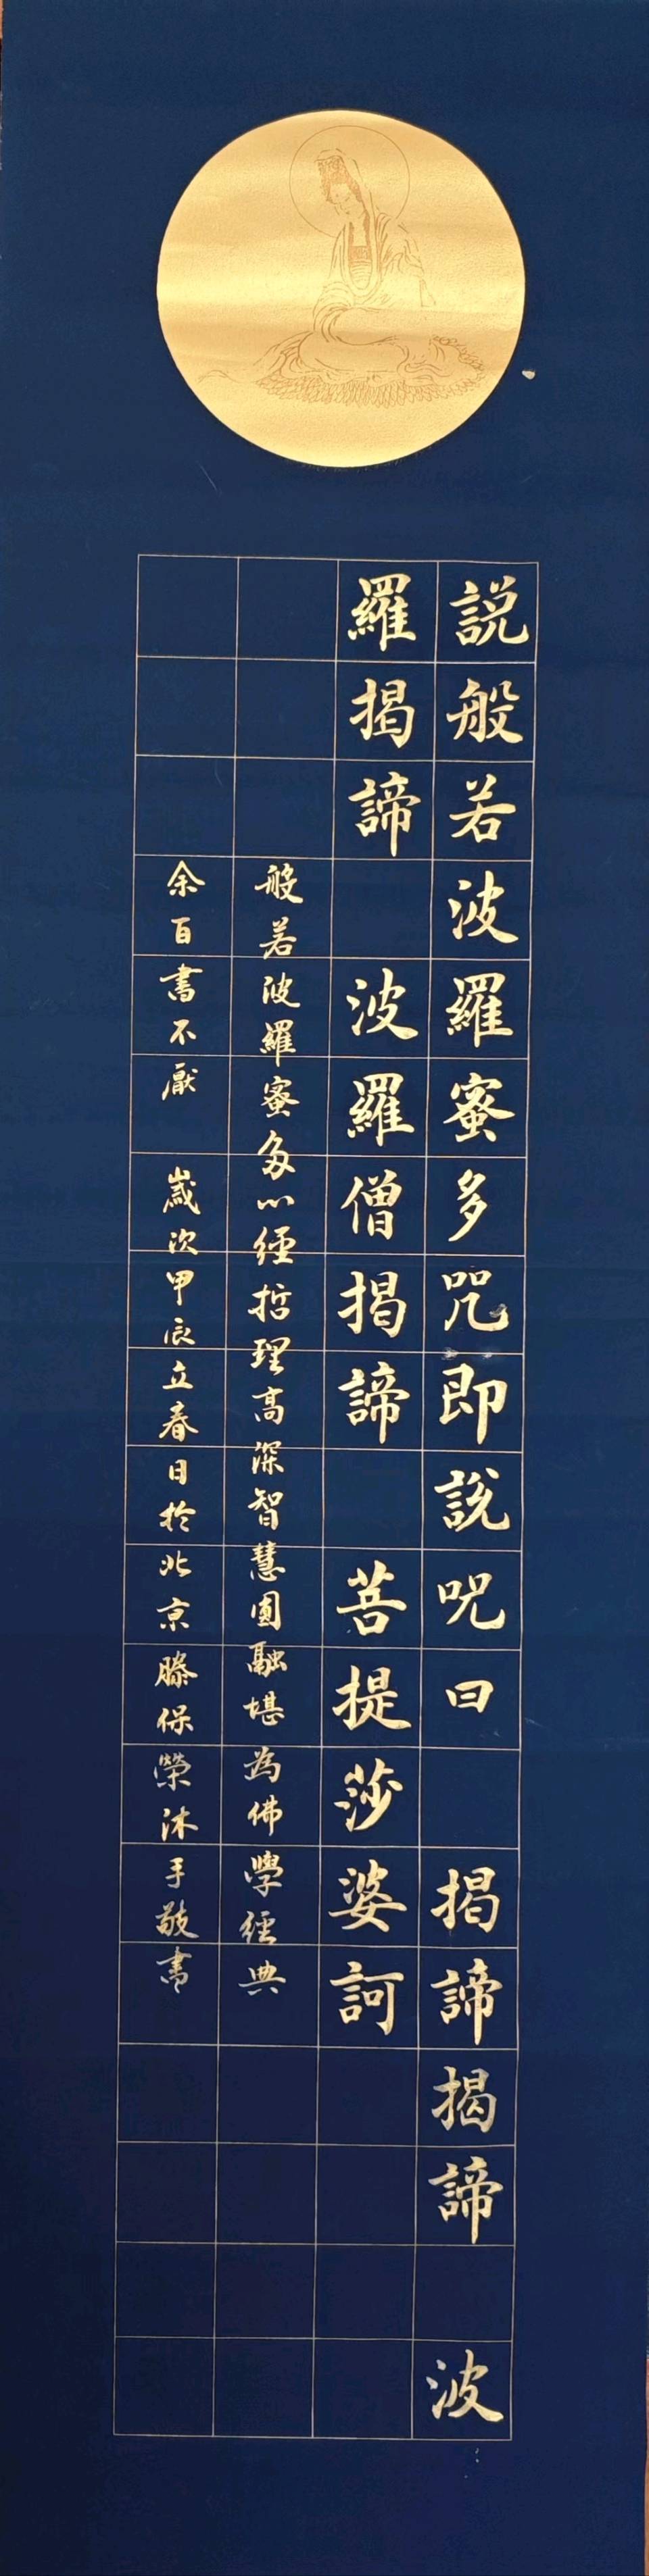 説般若波羅蜜多咒即說呪曰 揭諦揭諦 波
羅揭諦 波羅僧揭諦 菩提莎婆訶
般若波羅蜜多心經哲理高深智慧圓融堪為佛學經典
余百書不厭 歲次甲辰立春日於北京滕保榮沐手敬書